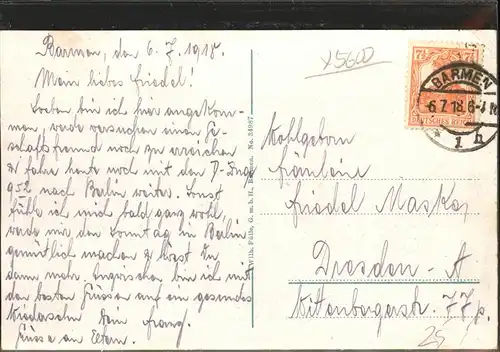 Barmen, den 6.7.1918.
Mein liebes Friedel!
Soeben bin ich hier angekom-
men, werde versuchen einen Ge-
schäftsfreund noch zu erreichen
& fahre heute noch mit dem D-Zuge
9 52 nach Berlin weiter. Sonst
fühle ich mich bald ganz wohl,
werde mir den Sonntag in Berlin
gemütlich machen & lässt. Im
dann mehr. Inzwischen bin ich mit
den besten Grüssen auf ein gesundes
Wiedersehn Dein Franz.
Grüsse an Eltern.
x5600
7½ 7½
DEUTSCHES REICH
BARMEN
6.7.18.6-7N
* 1 h
Wilh. Fülle, G. m. b. H., Barmen. No. 34987
Wohlgeborn
Fräulein
Friedel Maske,
Dresden-A
Wittenbergerstr. 77 p.
25